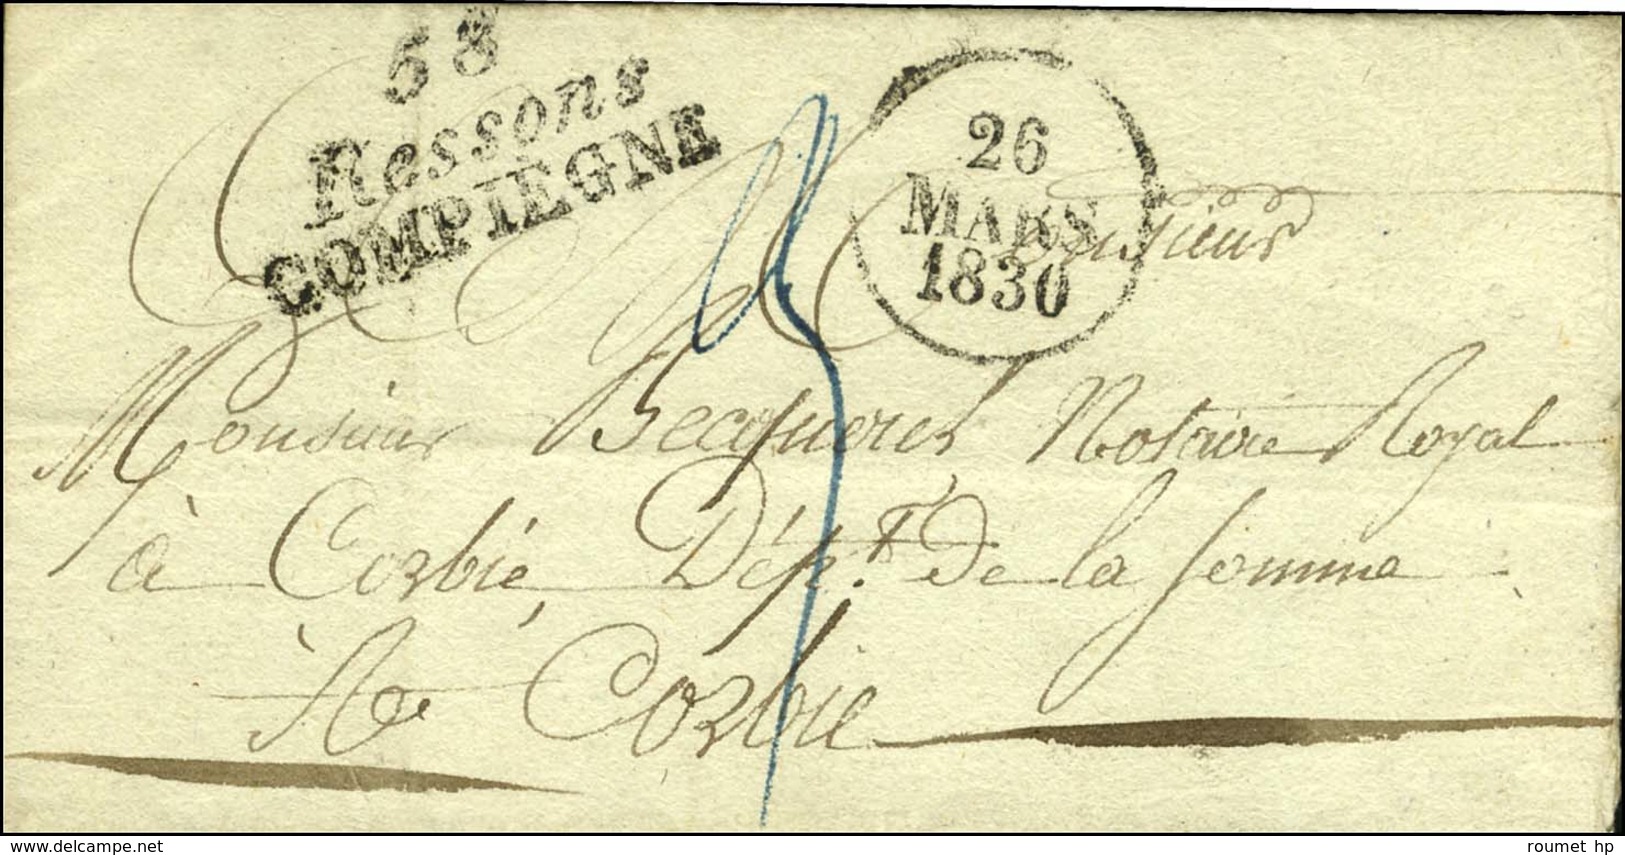 58
Ressons
COMPIÈGNE
26
MARS
1830
Monsieur
Monsieur Becquerel Notaire Royal
à Corbie, Dép.t de la Somme
à Corbie
www.delcampe.net
roumet hp